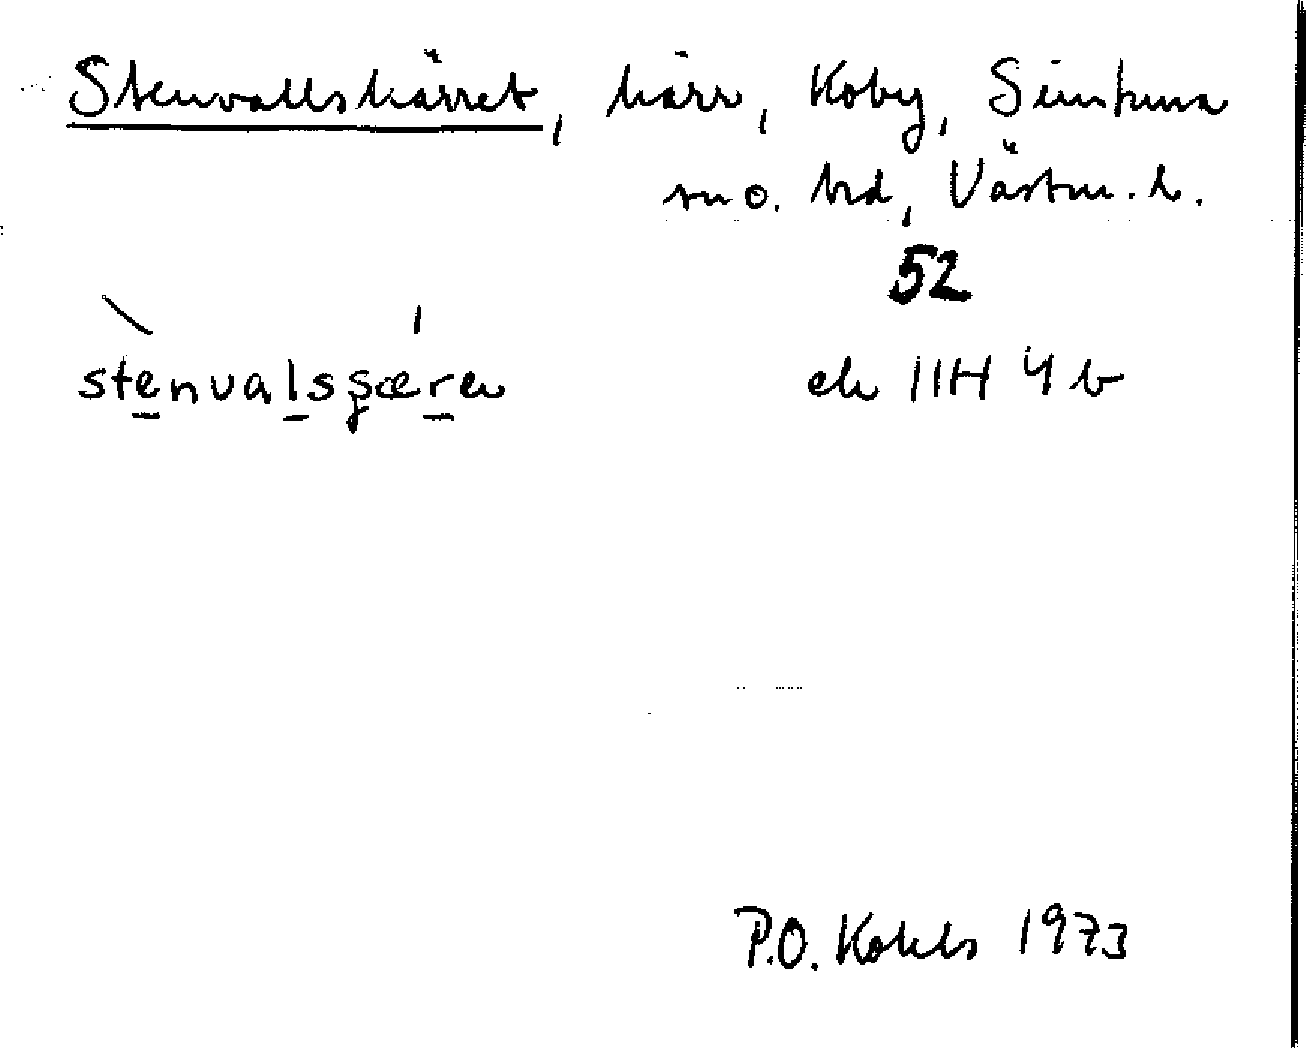 Stenvallskärret, kärr, Koby, Simtuna
sn o. hd, Västm. l.
52
stenvalsçæren
ek 11H 4b
P.O. Kohls 1973